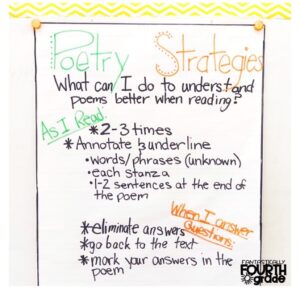 Poetry Strategies
What can I do to understand
poems better when reading?
As I Read:
*2-3 times
*Annotate & underline
•words/phrases (unknown)
•each stanza
•1-2 sentences at the end of
the poem
When I answer
Questions:
*eliminate answers
*go back to the text
*mark your answers in the
poem
FANTASTICALLY
FOURTH
grade